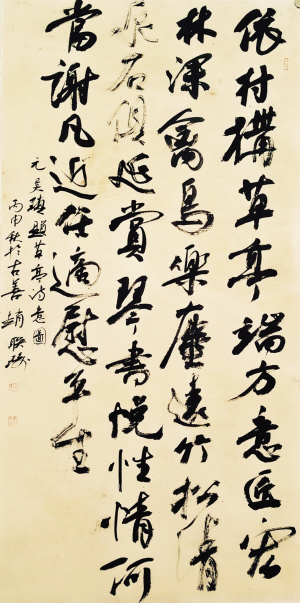 依村構草亭端方意匠宏
林深禽鳥樂塵遠竹松清
泉石供延賞琴書悅性情何
當謝凡近任適慰平生
元吳鎮題草亭詩意圖
丙申秋於古善趙